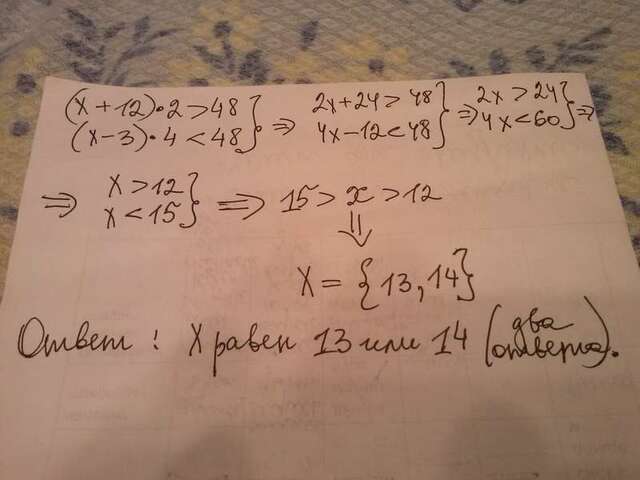 (x+12)·2>48 } ⇒ 2x+24>48 } ⇒ 2x>24 } ⇒
(x-3)·4<48 } 4x-12<48 } 4x<60 }
⇒ x>12 } ⇒ 15>x>12
x<15 }
⇓
X = {13, 14}
Ответ: X равен 13 или 14 (два
ответа).